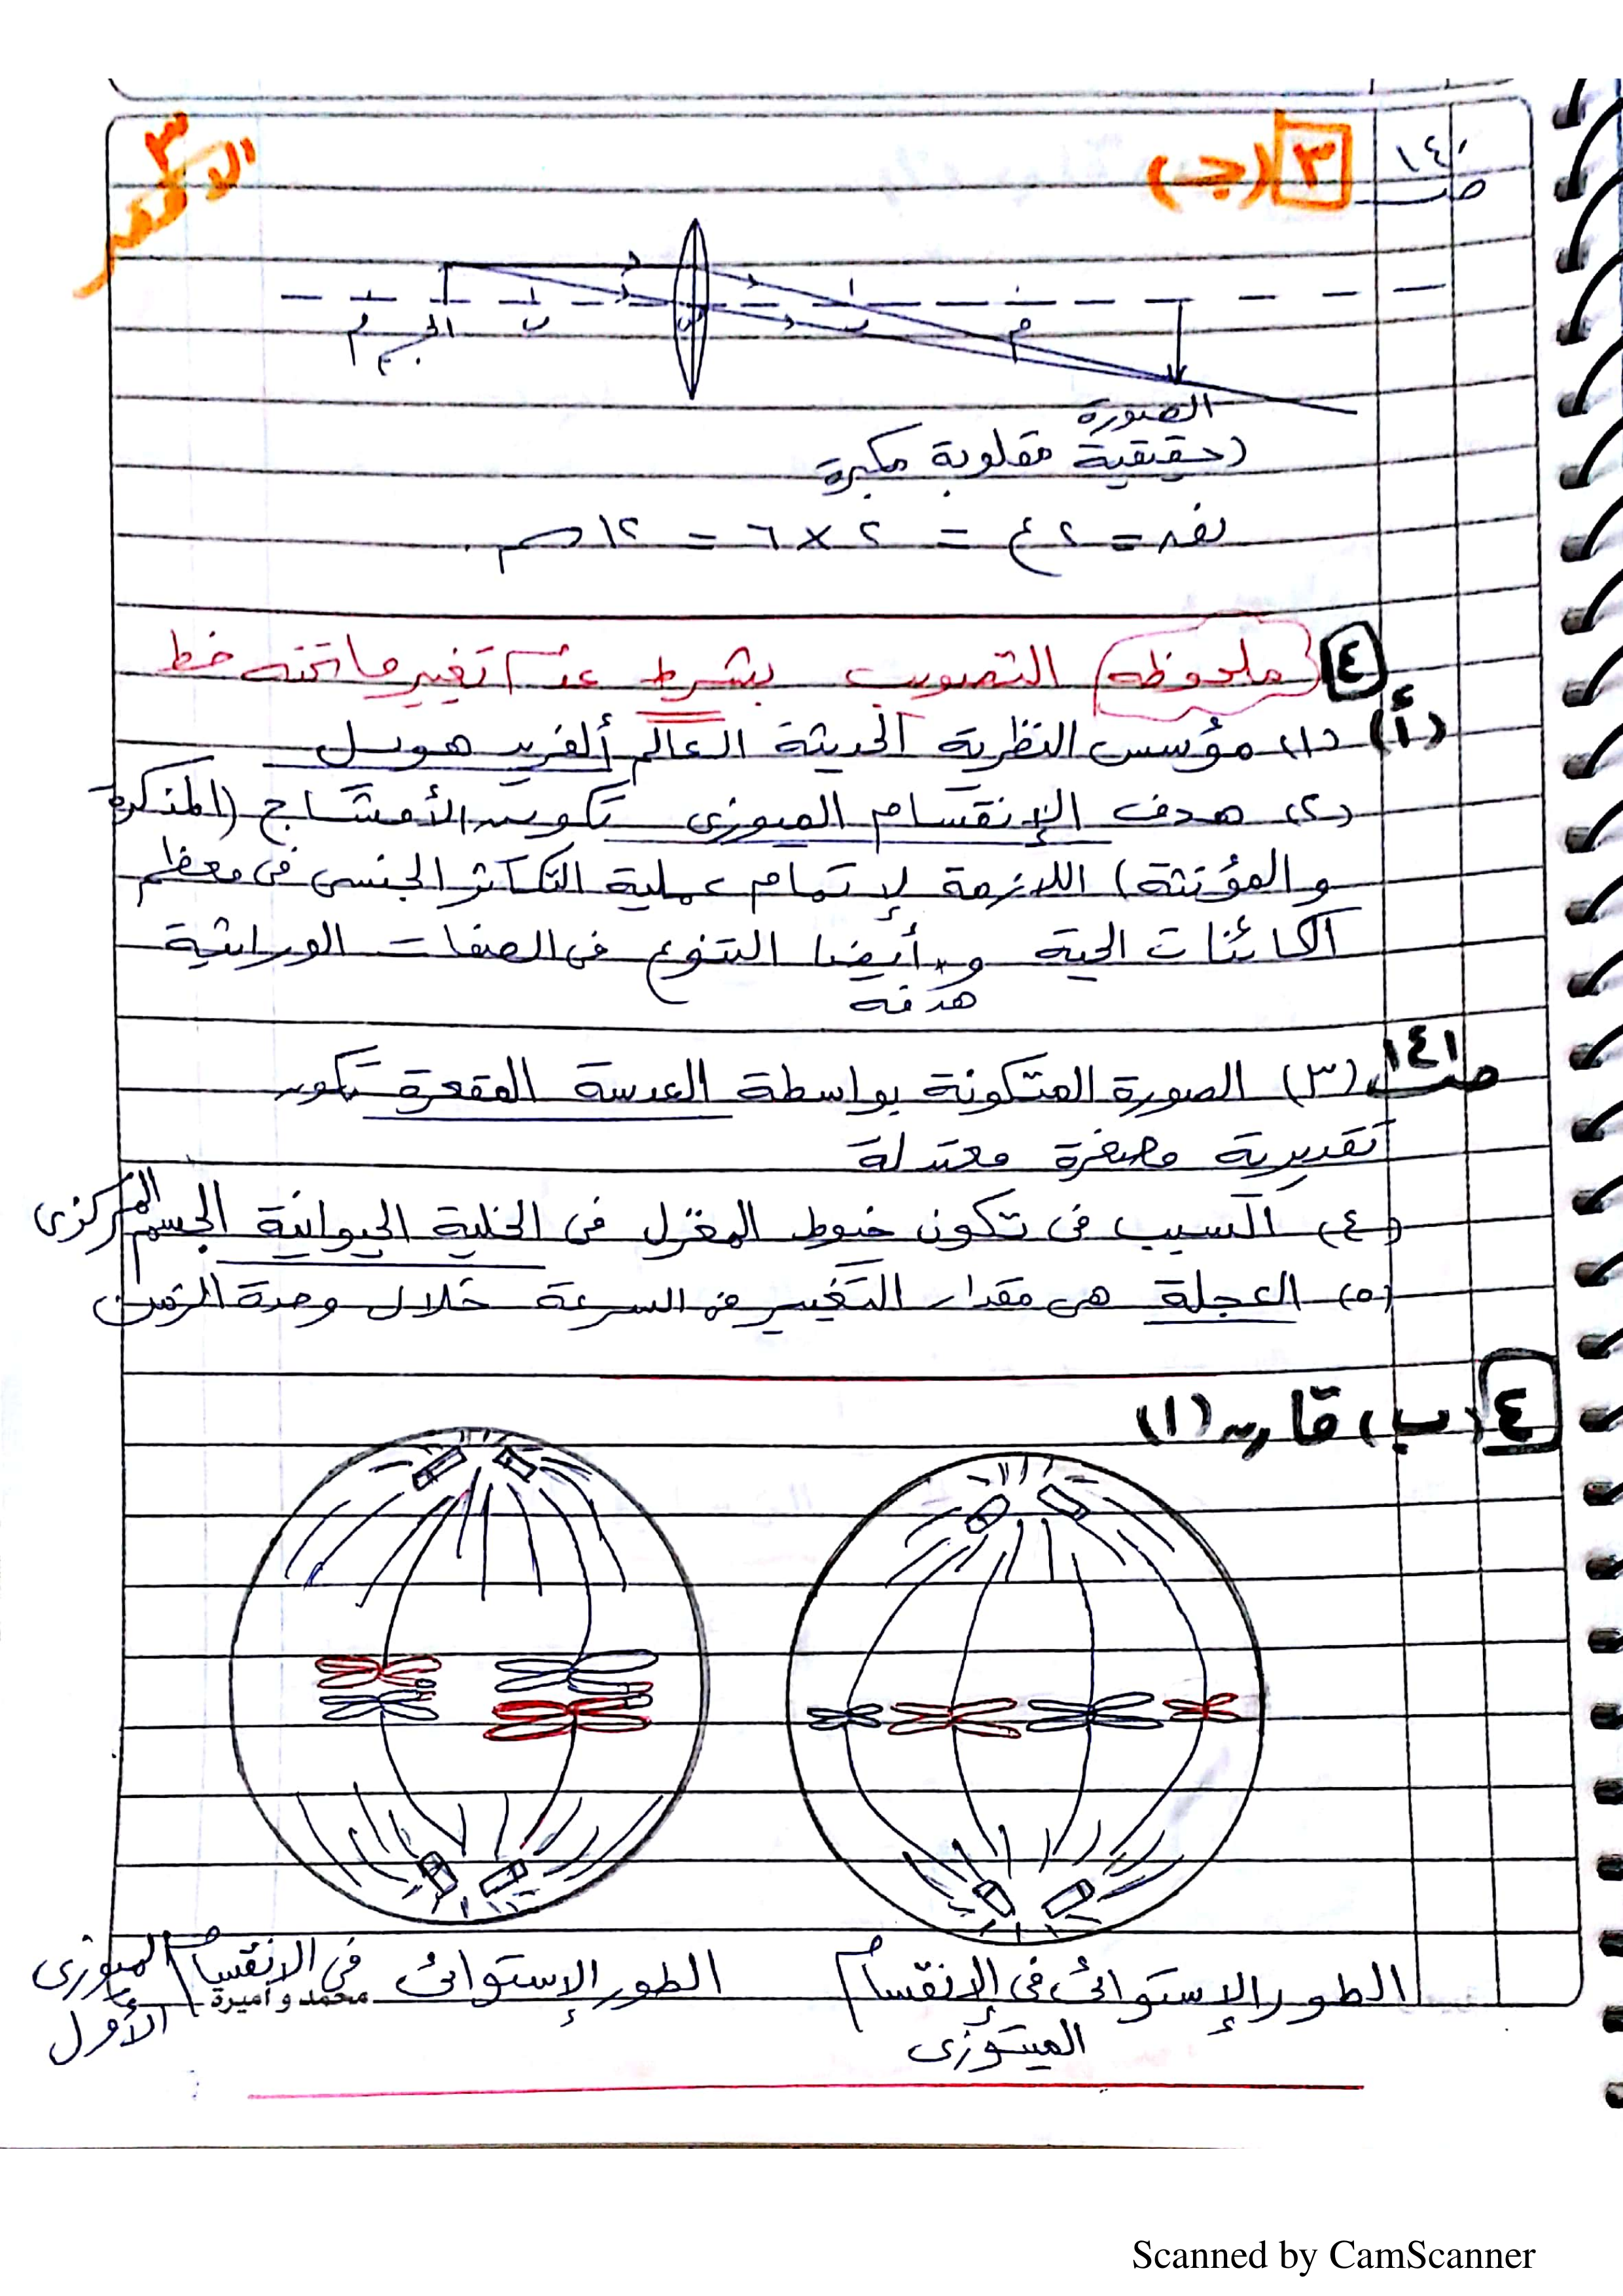 ١٤٠
ص
٣ (جـ)
٣
م الجسم ب ب م
الصورة
(حقيقية مقلوبة مكبرة
نقه = ٢ ع = ٢ × ٦ = ١٢ سم.
٤ (ملحوظة) التصويب بشرط عدم تغيير ما تحته خط
(أ) (١) مؤسس النظرية الحديثة العالم ألفريد هويل
(٢) هدف الإنقسام الميوزى تكوين الأمشاج (المذكرة
والمؤنثة) اللازمة لإتمام عملية التكاثر الجنسى فى معظم
الكائنات الحية و أيضا التنوع فى الصفات الوراثية
هدفه
ص ١٤١ (٣) الصورة المتكونة بواسطة العدسة المقعرة تكون
تقديرية مصغرة معتدلة
(٤) السبب فى تكون خيوط المغزل فى الخلية الحيوانية الجسم المركزى
(٥) العجلة هى مقدار التغيير فى السرعة خلال وحدة الزمن
٤ (ب) قارن (١)
الطور الإستوائى فى الإنقسام
الميتوزى
الطور الإستوائى فى الانقسام الميوزى
الأول
محمد و أميرة
Scanned by CamScanner